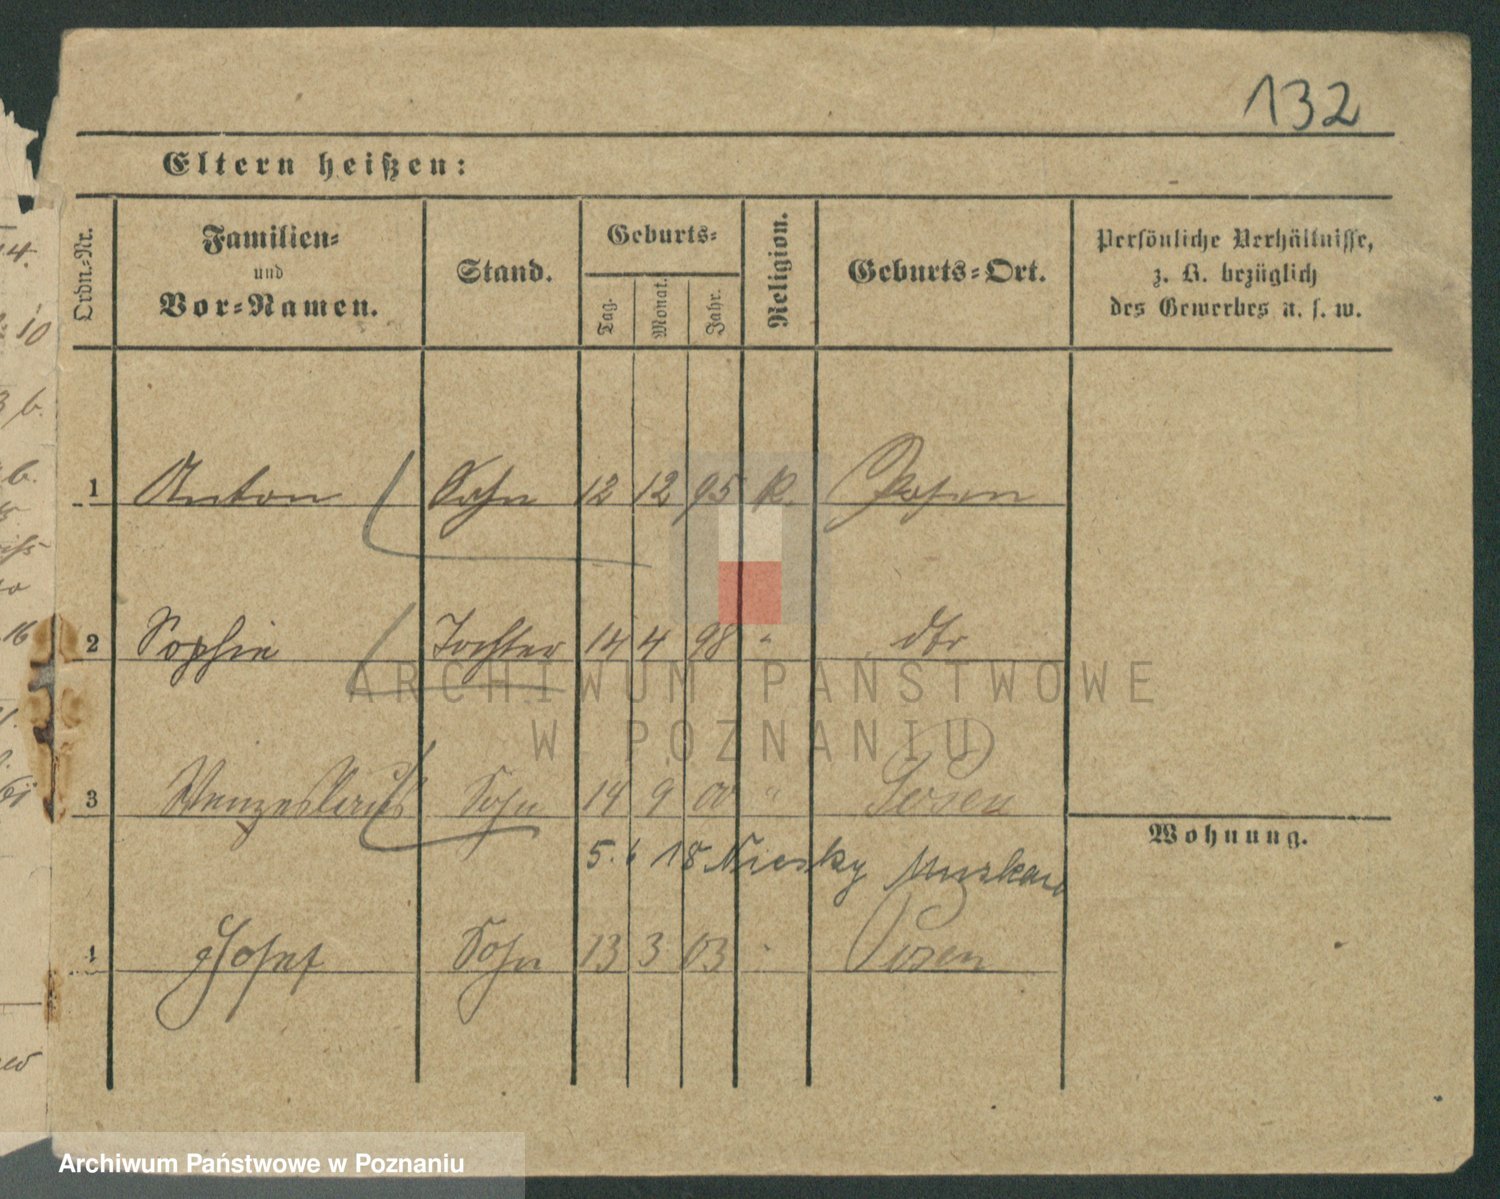 132
Eltern heißen:
Ordn.-Nr.
Familien-
und
Vor-Namen.
Stand.
Geburts-
Tag.
Monat.
Jahr.
Religion.
Geburts-Ort.
Persönliche Verhältnisse,
z. B. bezüglich
des Gewerbes u. s. w.
1 Anton Sohn 12 12 95 K. Posen
2 Sophie Tochter 14 4 98 " dto
ARCHIWUM PAŃSTWOWE
W POZNANIU
3 Wenzeslaus Sohn 14 9 00 " Posen
Wohnung.
5. 6 18 Niesky Muskau
4 Josef Sohn 13 3 03 " Posen
Archiwum Państwowe w Poznaniu